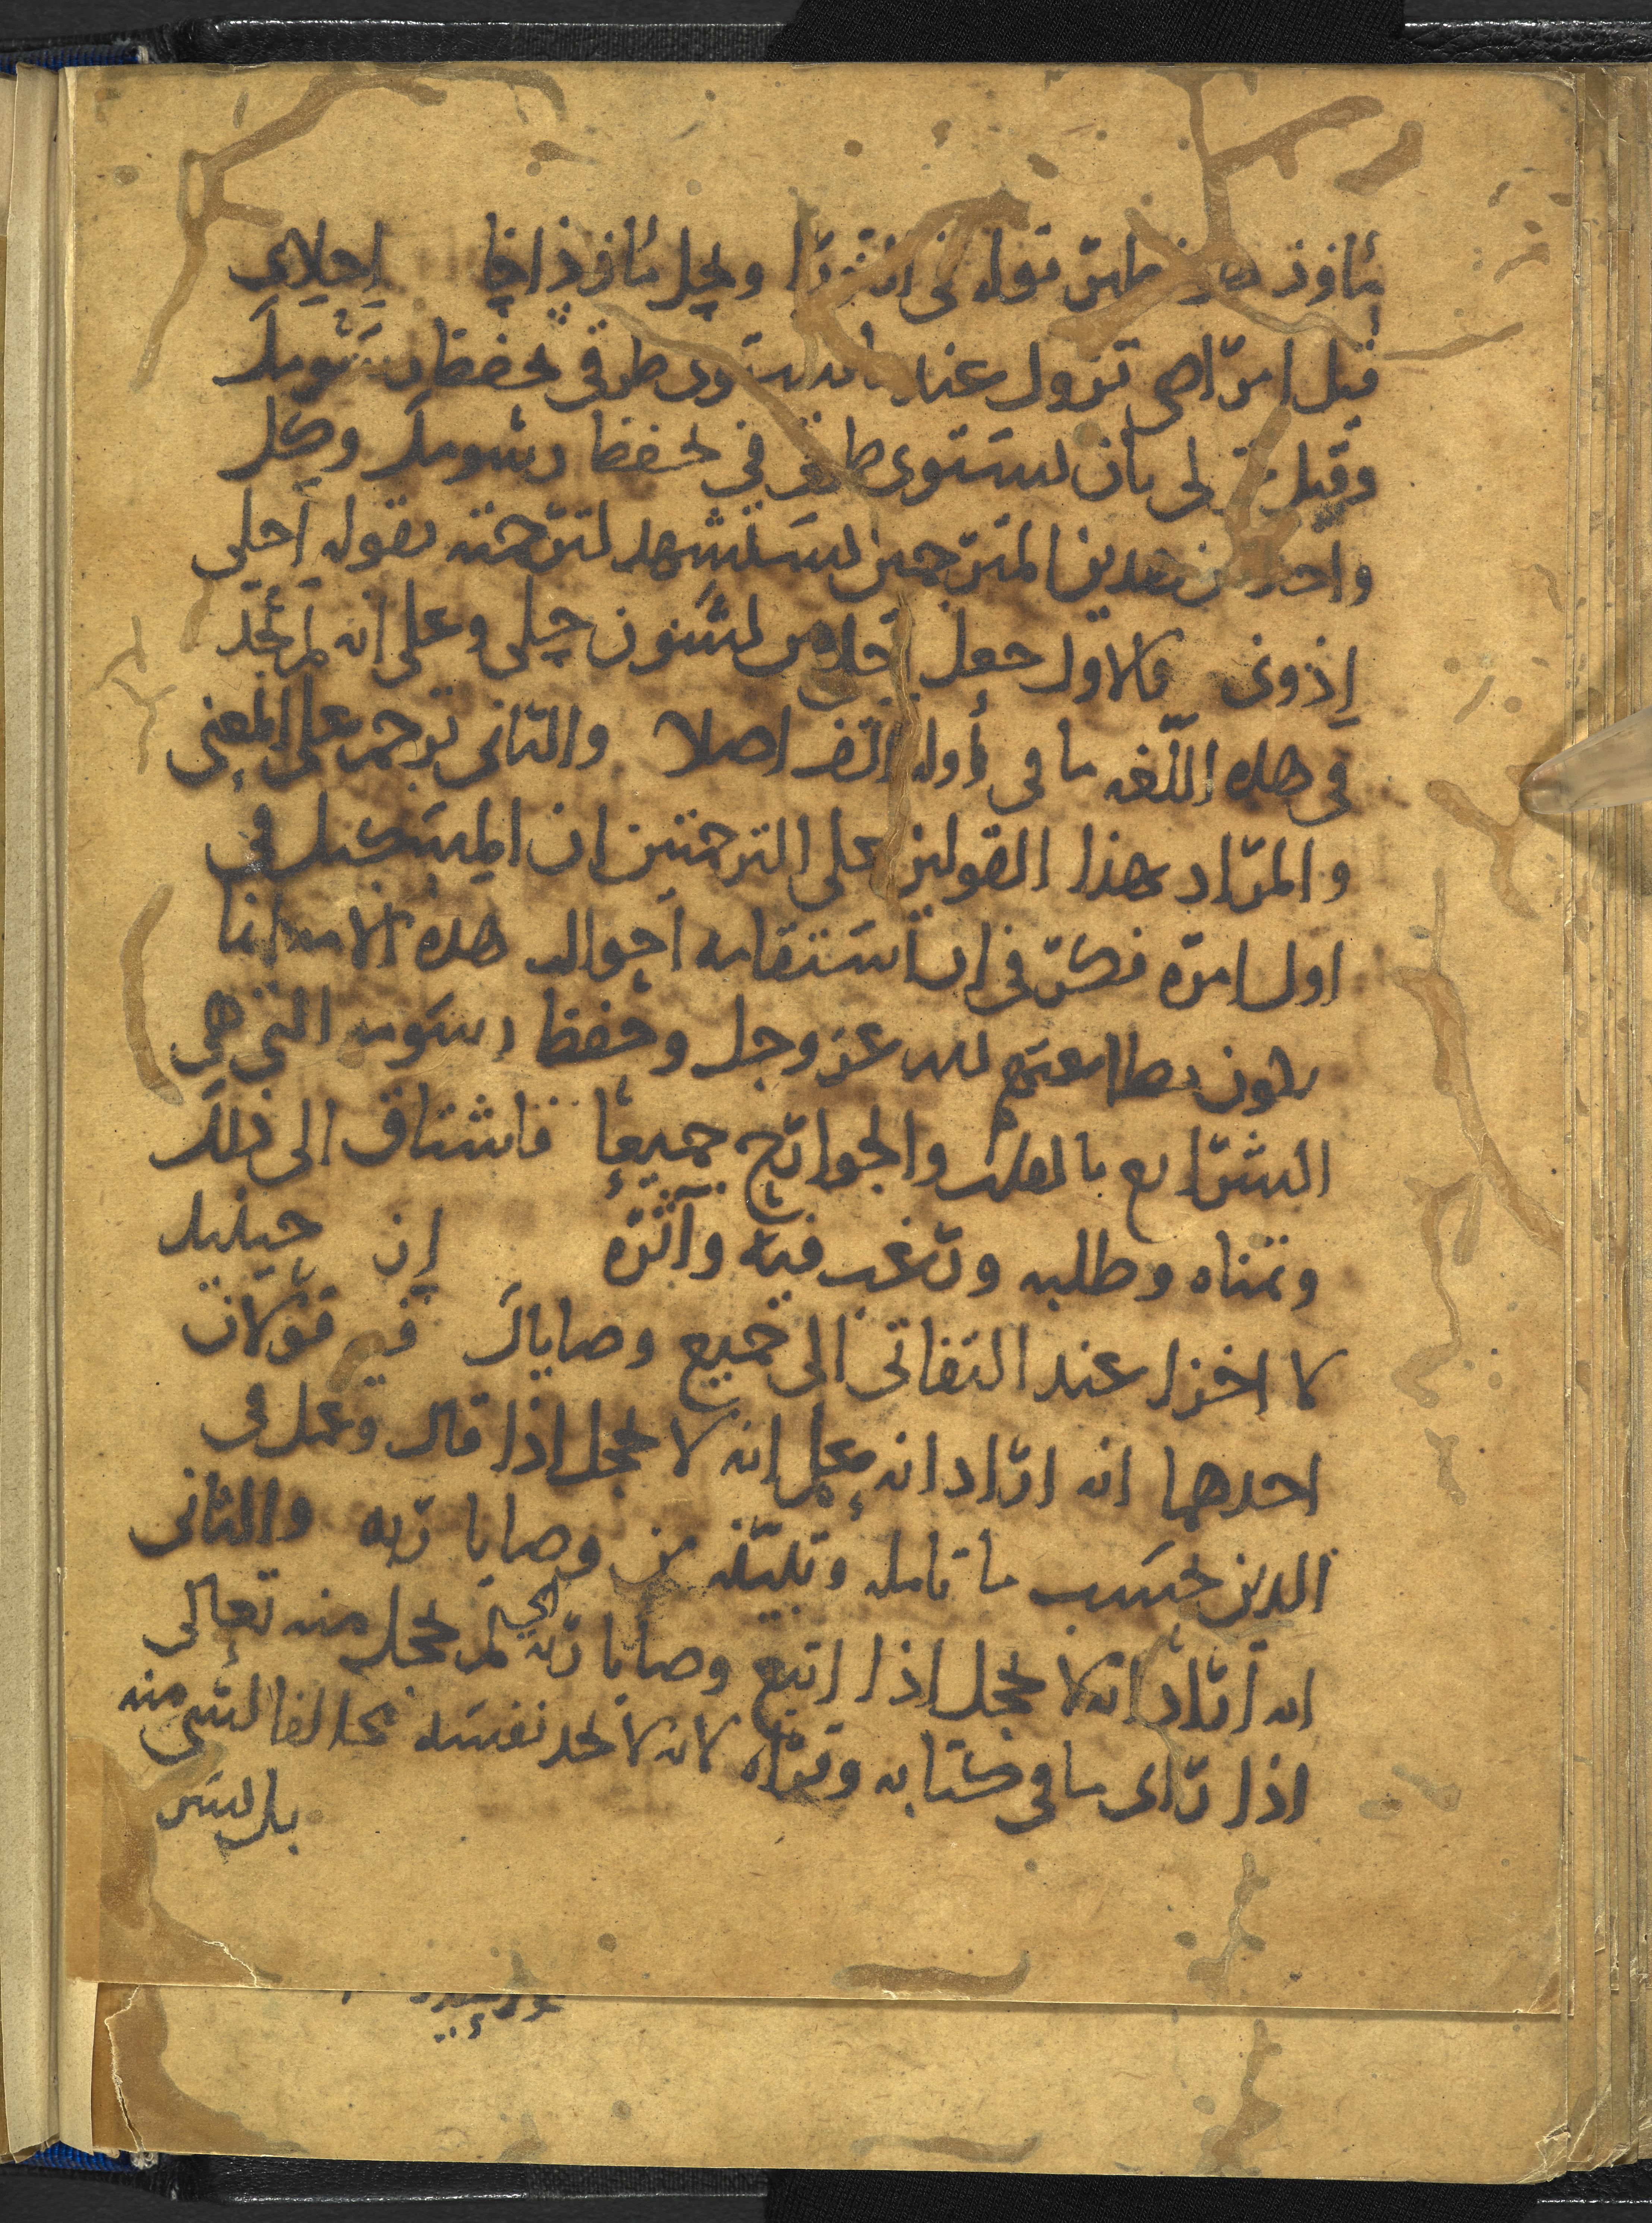 قبل امراضى تزول عنا بان تستوى طرقى بحفظ رسومك
وقيل تلى بان تستوى طرقى لحفظ رسومك وكل
واحد من هدين المترجمين يستشهد لترجمته بقوله احلى
اذونى فالاول جعل احلاى من لشون حيلى وعلى انه لم نجد
فى هده اللغه ما فى اوله الف اصلا والثانى ترجم على المعنى
والمراد بهذا القولين على الترجمتين ان المستكمل فى
اول امره فكر فى ان استقامه احوال هده الامه انما
يكون بطاعتهم لله عز وجل وحفظ رسومه التى هى
الشرايع بالقلب والجوارح جميعا فاشتاق الى ذلك
وتمناه وطلبه ورغب فيه وآثره إن حينيد
لا اخزا عند التفاتى الى جميع وصاياك فيه قولان
احدهما انه اراد انه علم انه لا يخجل اذا قال وعمل فى
الدين بحسب ما تامله وتبينه من وصايا ربه والثانى
انه اراد انه لا يخجل اذا اتبع وصايا ربه اى لم يخجل منه تعالى
اذا راى ما فى كتابه وقراه لانه لا يجد نفسه مخالفا لشى منه
بل يسر